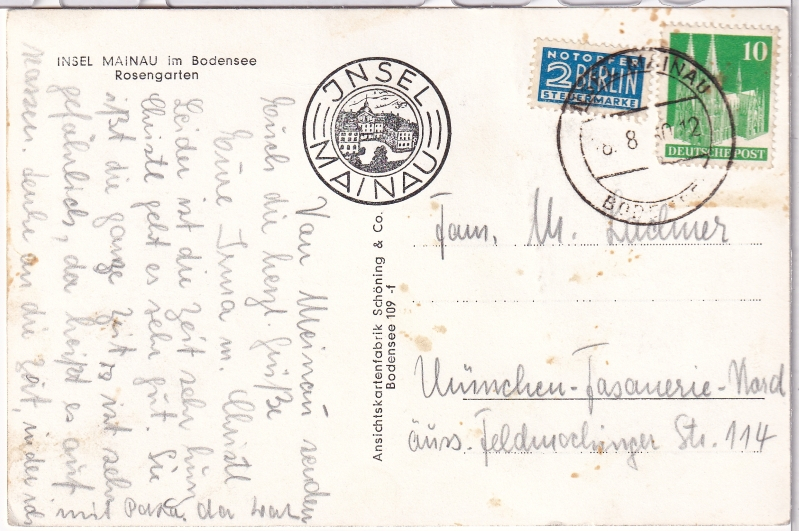 INSEL MAINAU im Bodensee
Rosengarten
JNSEL
MAINAU
NOTOPFER
2 BERLIN
STEUERMARKE
10
DEUTSCHE POST
MAINAU
8. 8
12
BODENSEE
Ansichtskartenfabrik Schöning & Co.
Bodensee 109 -f
Van Meinau senden
Euch die herzl. Grüße
Eure Irma u. Christl
Leider ist die Zeit sehr kurz
Christl geht es sehr gut. Sie
ißt die ganze Zeit es ist sehr
gefährlich, da heißt es auf-
passen. denke an die Zeit, in der ich
mit Papa da war
Fam. M. Ladmer
Münschen-Fasanerie-Nord
äuss. Feldmochinger Str. 114